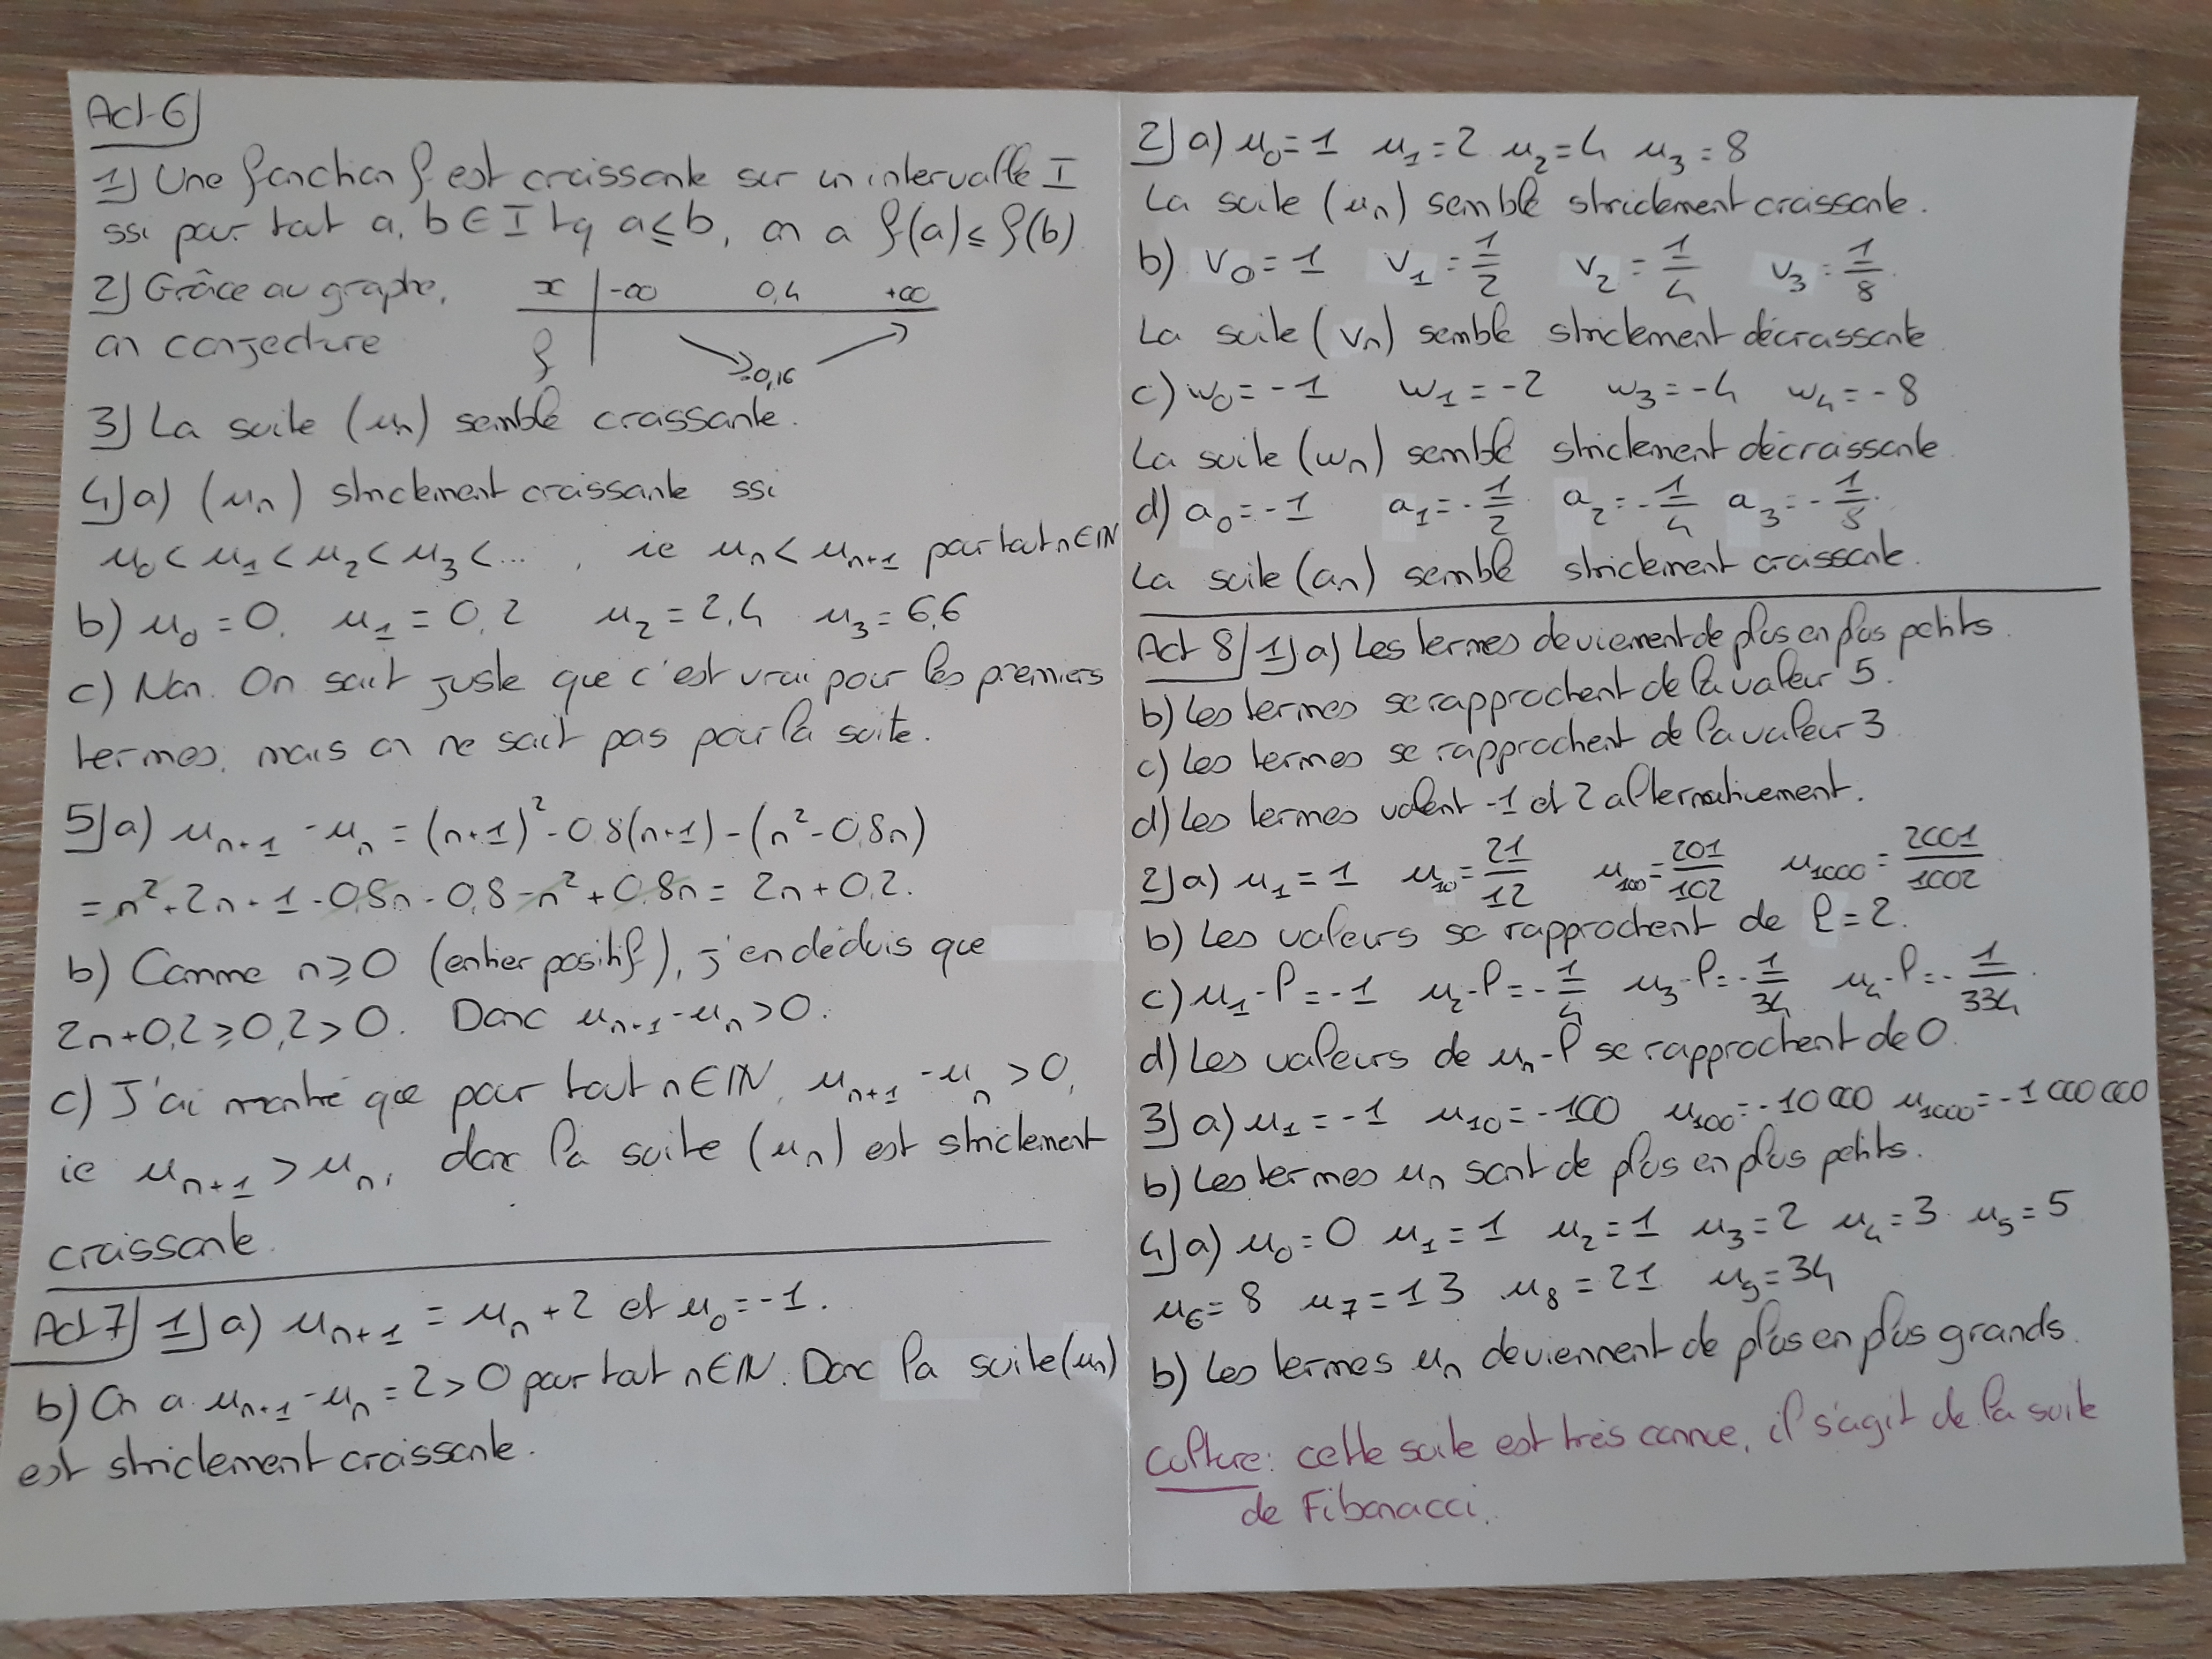 Act 6)
1) Une fonction f est croissante sur un intervalle I
ssi pour tout a, b ∈ I tq a ≤ b, on a f(a) ≤ f(b)
2) Grâce au graphe,
on conjecture
x | -∞ 0,4 +∞
f ↘ -0,16 ↗
3) La suite (un) semble croissante.
4) a) (un) strictement croissante ssi
u0 < u1 < u2 < u3 < ... , ie un < un+1 pour tout n ∈ IN
b) u0 = 0, u1 = 0,2 u2 = 2,4 u3 = 6,6
c) Non. On sait juste que c'est vrai pour les premiers
termes, mais on ne sait pas pour la suite.
5) a) un+1 - un = (n+1)² - 0,8(n+1) - (n² - 0,8n)
= n² + 2n + 1 - 0,8n - 0,8 - n² + 0,8n = 2n + 0,2.
b) Comme n ≥ 0 (entier positif), j'en déduis que
2n + 0,2 ≥ 0,2 > 0. Donc un+1 - un > 0.
c) J'ai montré que pour tout n ∈ IN, un+1 - un > 0,
ie un+1 > un, donc la suite (un) est strictement
croissante.
Act 7) 1) a) un+1 = un + 2 et u0 = -1.
b) On a un+1 - un = 2 > 0 pour tout n ∈ IN. Donc la suite (un)
est strictement croissante.
2) a) u0 = 1 u1 = 2 u2 = 4 u3 = 8
La suite (un) semble strictement croissante.
b) v0 = 1 v1 = 1/2 v2 = 1/4 v3 = 1/8.
La suite (vn) semble strictement décroissante
c) w0 = -1 w1 = -2 w3 = -4 w4 = -8
La suite (wn) semble strictement décroissante
d) a0 = -1 a1 = -1/2 a2 = -1/4 a3 = -1/8.
La suite (an) semble strictement croissante.
Act 8) 1) a) Les termes deviennent de plus en plus petits.
b) Les termes se rapprochent de la valeur 5.
c) Les termes se rapprochent de la valeur 3
d) Les termes valent -1 et 2 alternativement.
2) a) u1 = 1 u10 = 21/12 u100 = 201/102 u1000 = 2001/1002
b) Les valeurs se rapprochent de l = 2.
c) u1 - l = -1 u2 - l = -1/4 u3 - l = -1/34 u4 - l = -1/334.
d) Les valeurs de un - l se rapprochent de 0.
3) a) u1 = -1 u10 = -100 u100 = -10 000 u1000 = -1 000 000
b) Les termes un sont de plus en plus petits.
4) a) u0 = 0 u1 = 1 u2 = 1 u3 = 2 u4 = 3 u5 = 5
u6 = 8 u7 = 13 u8 = 21 u9 = 34
b) Les termes un deviennent de plus en plus grands.
Culture : cette suite est très connue, il s'agit de la suite
de Fibonacci.